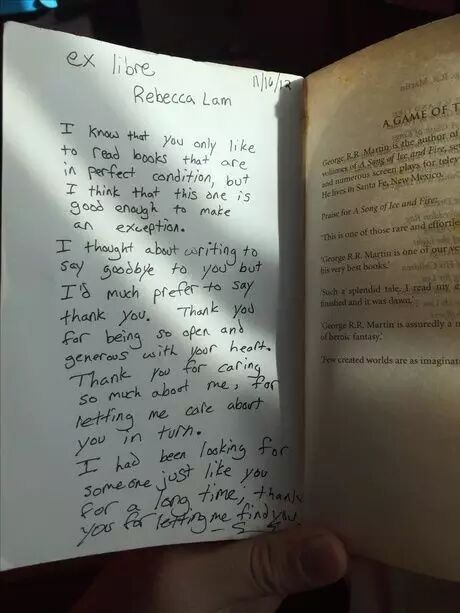 ex libre
11/16/12
Rebecca Lam
I know that you only like
to read books that are
in perfect condition, but
I think that this one is
good enough to make
an exception.
I thought about writing to
say goodbye to you but
I'd much prefer to say
thank you. Thank you
for being so open and
generous with your heart.
Thank you for caring
so much about me, for
letting me care about
you in turn.
I had been looking for
someone just like you
for a long time; thank
you for letting me find you.
A GAME OF T
George R.R. Martin is the author of
volumes of A Song of Ice and Fire, sev
and numerous screen plays for telev
He lives in Santa Fe, New Mexico.
Praise for A Song of Ice and Fire:
'This is one of those rare and effortl
'George R.R. Martin is one of our
his very best books.'
Such a splendid tale. I read my e
finished and it was dawn.
'George R.R. Martin is assuredly a n
of heroic fantasy.'
'Few created worlds are as imaginat